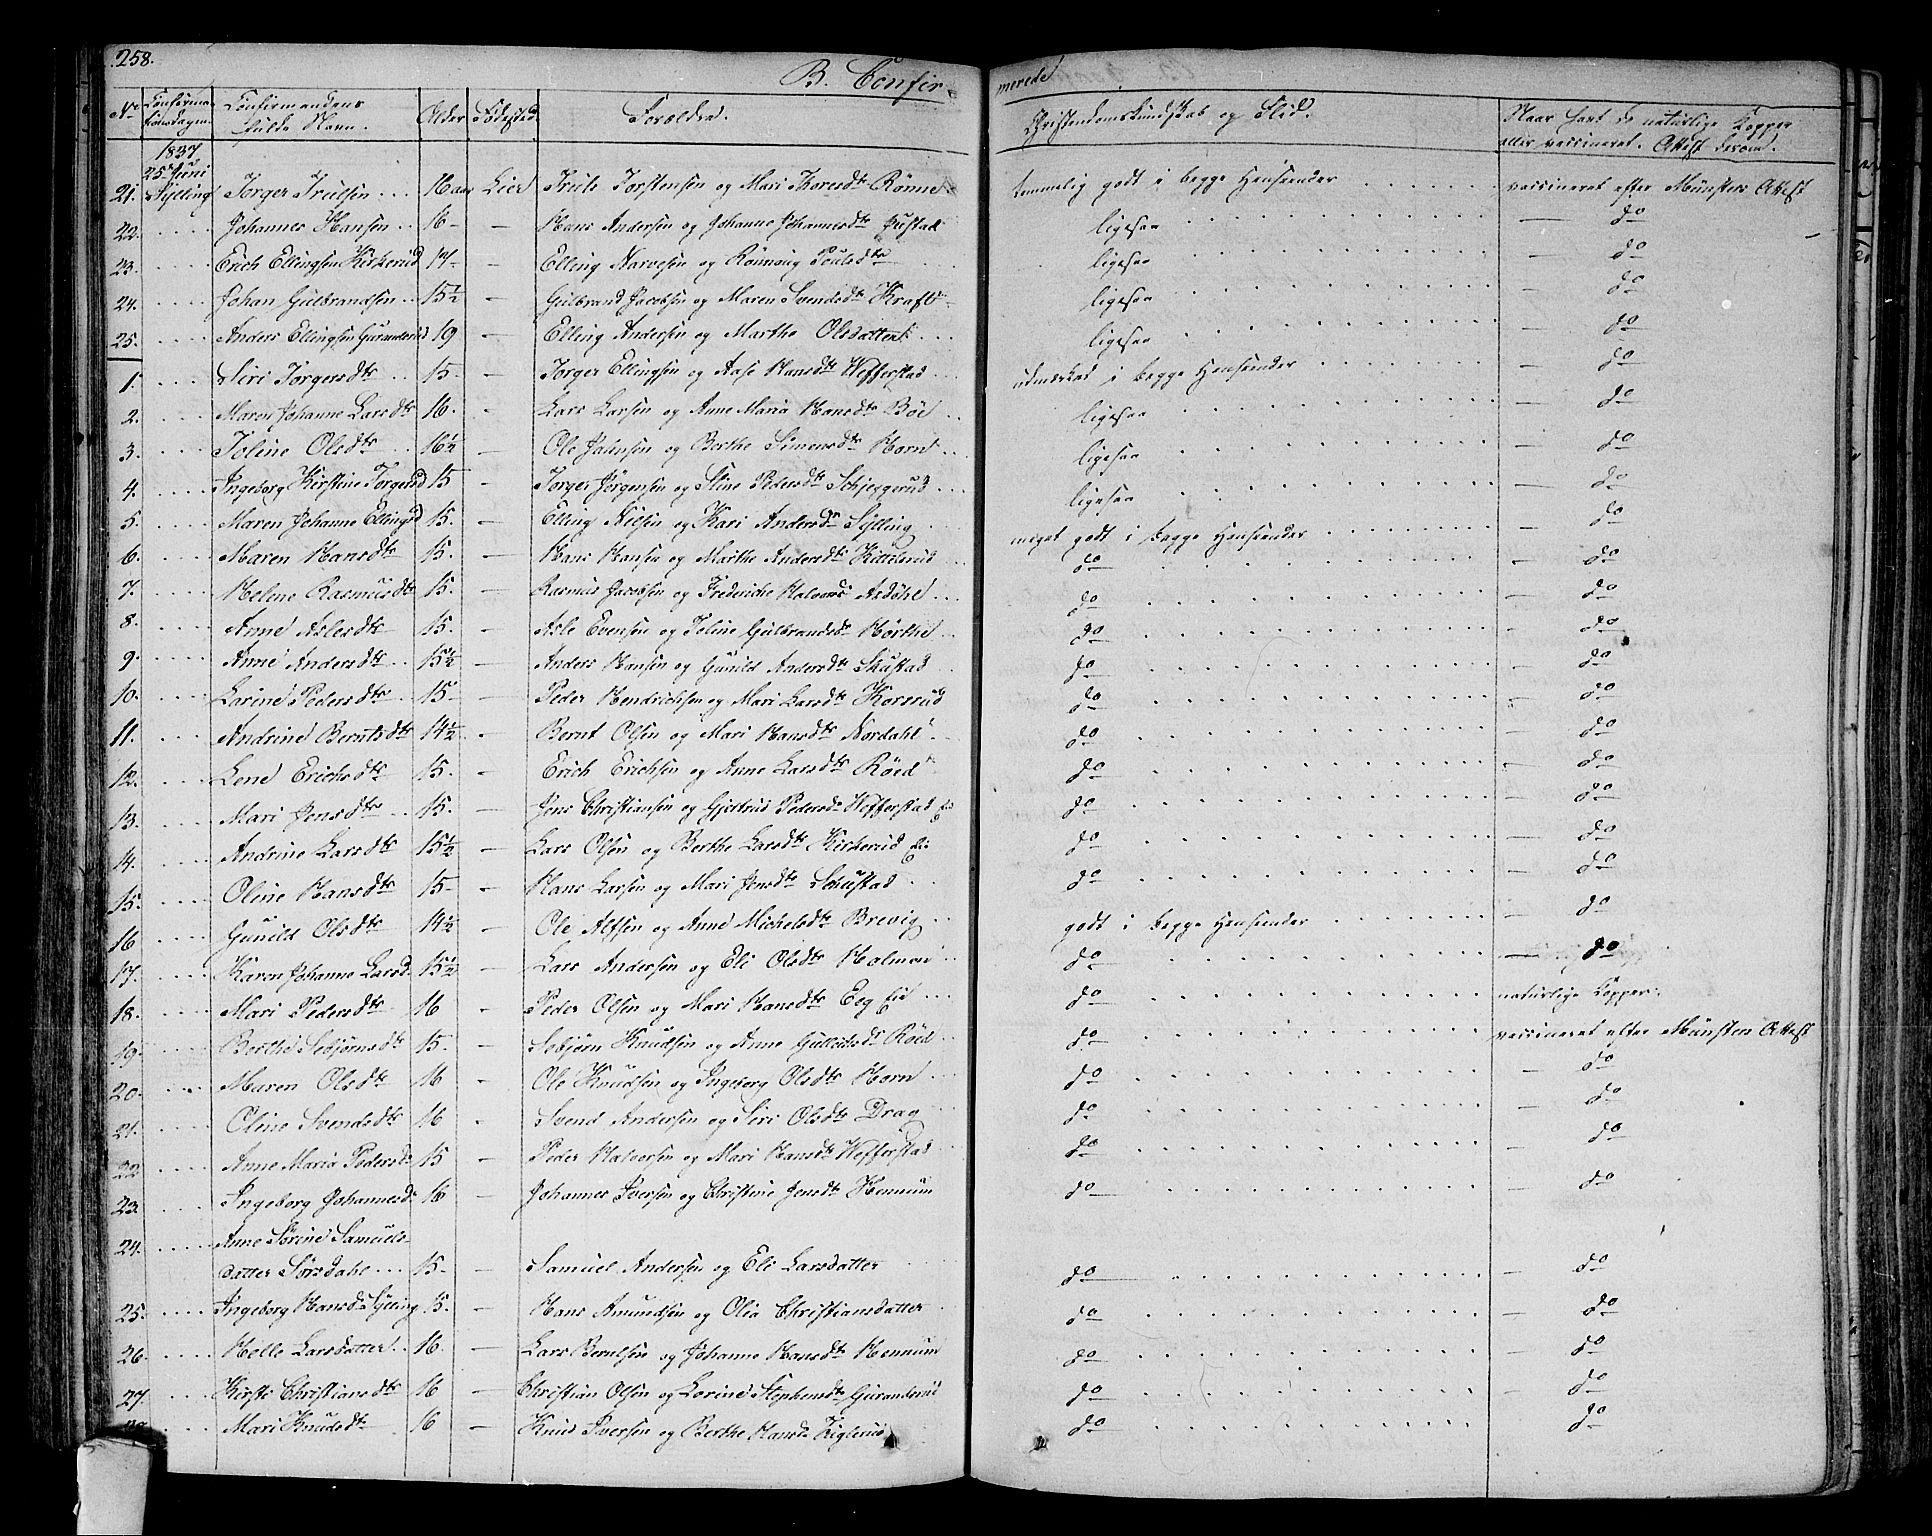 258.
B. Confirmerede
No Confirmationsdagen. Confirmandens fulde Navn. Alder Fødested Forældre. Christendomskundskab og Flid. Naar havt de naturlige Kopper eller vaccineret. Attest derom.
1837
25de Juni
21. Sylling Torger Trulsen 16 aar Lier Truls Torstensen og Mari Toresdtr Rønne temmelig godt i begge Henseender vaccineret efter Münsters Attest
22. Johannes Hansen 16 - Hans Andersen og Johanne Johannesdtr Justad ligesaa - do
23. Erich Ellingsen Kirkerud 17 - Elling Narvesen og Rønnaug Poulsdtr ligesaa - do
24. Johan Gulbrandsen 15½ - Gulbrand Jacobsen og Maren Svendsdtr Kraft ligesaa - do
25. Anders Ellingsen Guranderud 19 - Elling Andersen og Marthe Olsdatter ligesaa - do
1. Siri Torgersdtr 15 - Torger Ellingsen og Aase Hansdtr Wefferstad udmærket i begge Henseender - do
2. Maren Johanne Larsdtr 16 - Lars Larsen og Anne Maria Hansdtr Böe ligesaa - do
3. Joline Olsdtr 16½ - Ole Johnsen og Berthe Simensdtr Horn ligesaa - do
4. Ingeborg Kirstine Torgersd 15 - Torger Jørgensen og Stine Pedersdtr Schjeggerud ligesaa - do
5. Maren Johanne Ellingsd 15 - Elling Nilsen og Kari Andersdr Sylling meget godt i begge Henseender - do
6. Maren Hansdtr 15 - Hans Hansen og Marthe Andersdtr Kittilsrud do - do
7. Helene Rasmusdtr 15 - Rasmus Jacobsen og Frederiche Halvorsd Asdöhl do - do
8. Anne Aslesdtr 15 - Asle Evensen og Joline Gulbrandsdr Hørthe do - do
9. Anne Andersdtr 15½ - Anders Hansen og Gunild Andersdtr Skustad do - do
10. Larine Pedersdtr 15 - Peder Hendrichsen og Mari Larsdtr Korsrud do - do
11. Andrine Berntsdtr 14½ - Bernt Olsen og Mari Hansdtr Nordahl do - do
12. Lene Erichsdtr 15 - Erich Erichsen og Anne Larsdtr Röed do - do
13. Mari Jensdtr 15 - Jens Christiansen og Gjertrud Pedersdr Wefferstad Eie do - do
14. Andrine Larsdtr 15½ - Lars Olsen og Berthe Larsdtr Kirkerud Eie do - do
15. Oline Hansdtr 15 - Hans Larsen og Mari Jensdtr Schustad do - do
16 Gunild Olsdtr 14½ - Ole Alfsen og Anne Michelsdtr Brevig godt i begge Henseender - do
17. Karen Johanne Larsd. 15½ - Lars Andersen og Eli Olsdtr Holmen do - do
18. Mari Pedersdtr 16 - Peder Olsen og Mari Hansdtr Eeg Eie do naturlige Kopper.
19. Berthe Sebjørnsdtr 15 - Sebjørn Knudsen og Anne Gulliksdr Röed do vaccineret efter Münsters Attest
20. Maren Olsdtr 16 - Ole Knudsen og Ingeborg Olsdtr Horn do - do
21. Oline Svendsdtr 16 - Svend Andersen og Siri Olsdtr Drag do - do
22 Anne Maria Pedersd 15 - Peder Halvorsen og Mari Hansdtr Wefferstad do - do
23. Ingeborg Johannesdr 16 - Johannes Iversen og Christine Jensdtr Hennum do - do
24. Anne Sørine Samuels-
datter Sørsdahl 15 - Samuel Andersen og Eli Larsdatter do - do
25. Ingeborg Hansdr Sylling 15 - Hans Amundsen og Olia Christiansdatter do - do
26. Helle Larsdatter 16 - Lars Berntsen og Johanne Hansdtr Hennum do - do
27. Kirsti Christiansdtr 16 - Christian Olsen og Lovine Stephensdtr Guranderud do - do
28. Mari Knudsdtr 16 - Knud Iversen og Berthe Hansdr Kiglerud do - do